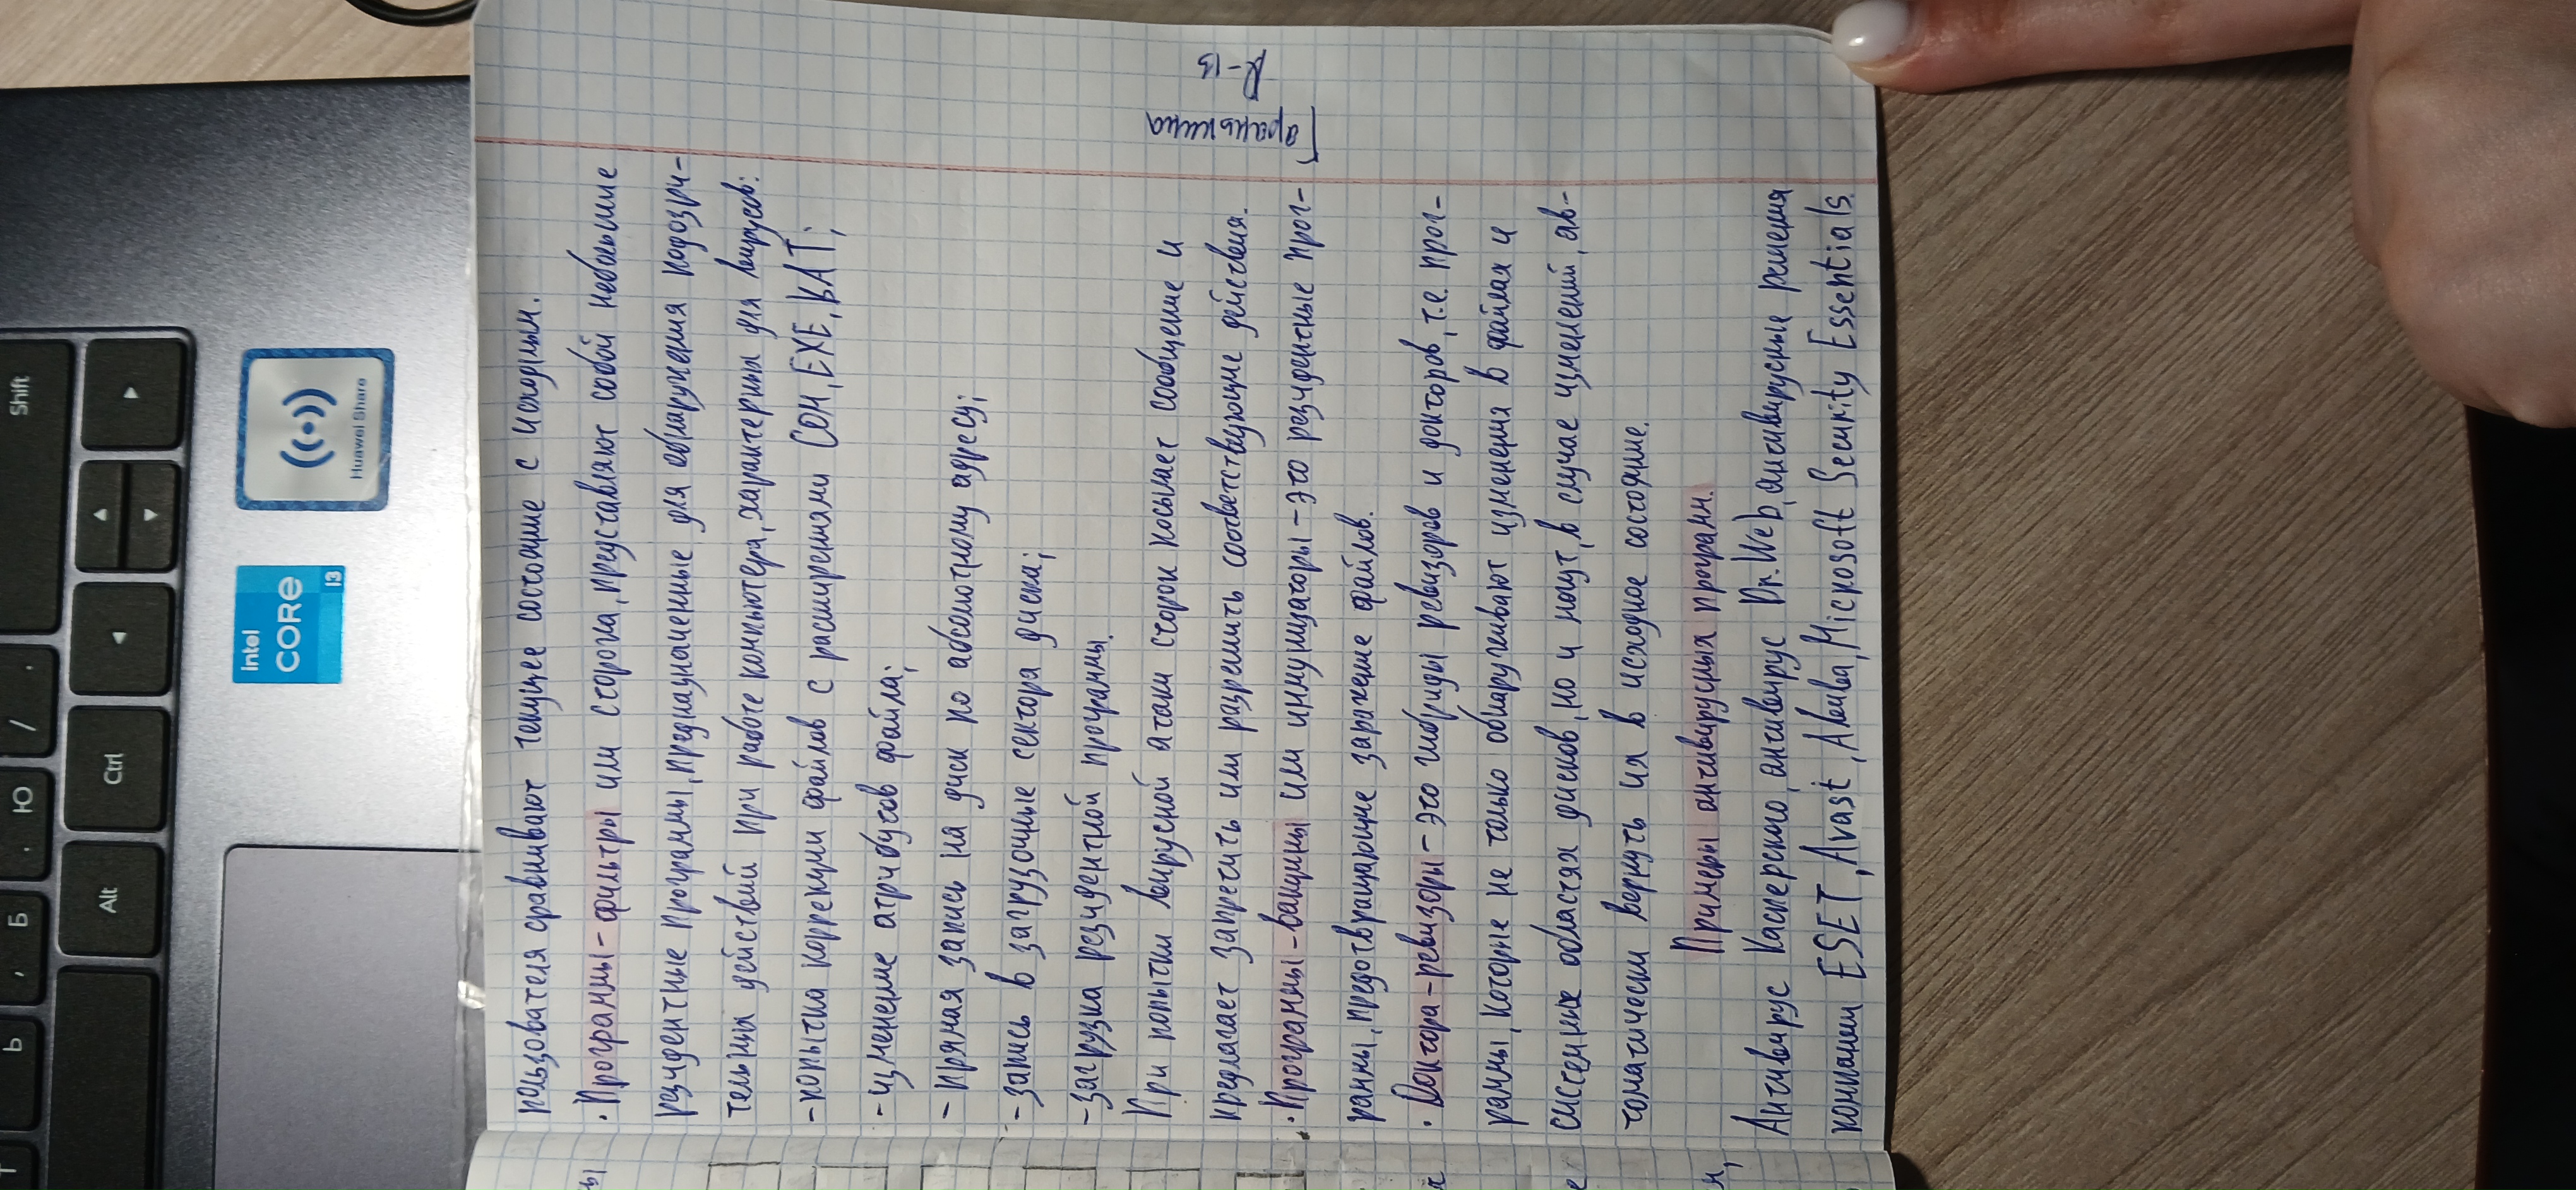 пользователя сравнивают текущее состояние с исходным.
· Программы-фильтры или сторожа, представляют собой небольшие
резидентные программы, предназначенные для обнаружения подозри-
тельных действий при работе компьютера, характерных для вирусов:
- попытка коррекции файлов с расширениями COM, EXE, BAT;
- изменение атрибутов файла;
- прямая запись на диск по абсолютному адресу;
- запись в загрузочные сектора диска;
- загрузка резидентной программы.
При попытки вирусной атаки сторож посылает сообщение и
предлагает запретить или разрешить соответствующие действия.
· Программы-вакцины или иммунизаторы - это резидентные прог-
раммы, предотвращающие заражение файлов.
· Доктора-ревизоры - это гибриды ревизоров и докторов, т.е. прог-
раммы, которые не только обнаруживают изменения в файлах и
системных областях дисков, но и могут, в случае изменений, ав-
томатически вернуть их в исходное состояние.
Примеры антивирусных программ.
Антивирус Касперского, антивирус Dr.Web, антивирусные решения
компании ESET, Avast, Авива, Microsoft Security Essentials.
Гаранькина
R-13
Shift
/
.
Ctrl
Ю
Alt
Б
,
Ь
intel
CORE
i3
Huawei Share